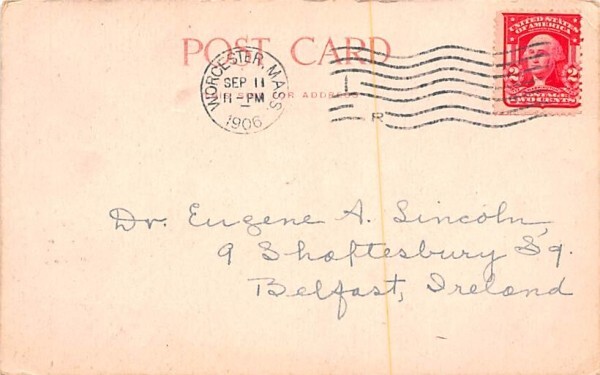 UNITED STATES
OF AMERICA
POST CARD
2 2
POSTAGE
TWO CENTS
WORCESTER, MASS.
SEP 11
11 - PM
1906
FOR ADDRESS
I
R
Dr. Eugene A. Lincoln,
9 Shaftesbury Sq.
Belfast, Ireland